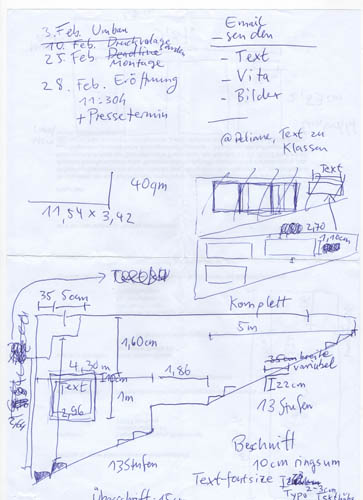 3. Feb. Umbau
10. Feb. Druckvorlage senden
25. Feb. Deadline
Montage
28. Feb. Eröffnung
11:30h
+ Pressetermin
Email
senden
- Text
- Vita
- Bilder
@Heliane, Text zu
Klassen
40qm
11,54 x 3,42
Text
2,70
1,10cm
35, 5cm
Komplett
5m
1,60cm
4,30m
1,86
35cm breite
variabel
22cm
Text
1m
2,96
13 Stufen
13 Stufen
Beschnitt
10cm ringsum
Text-fontsize
Typo
2-3cm